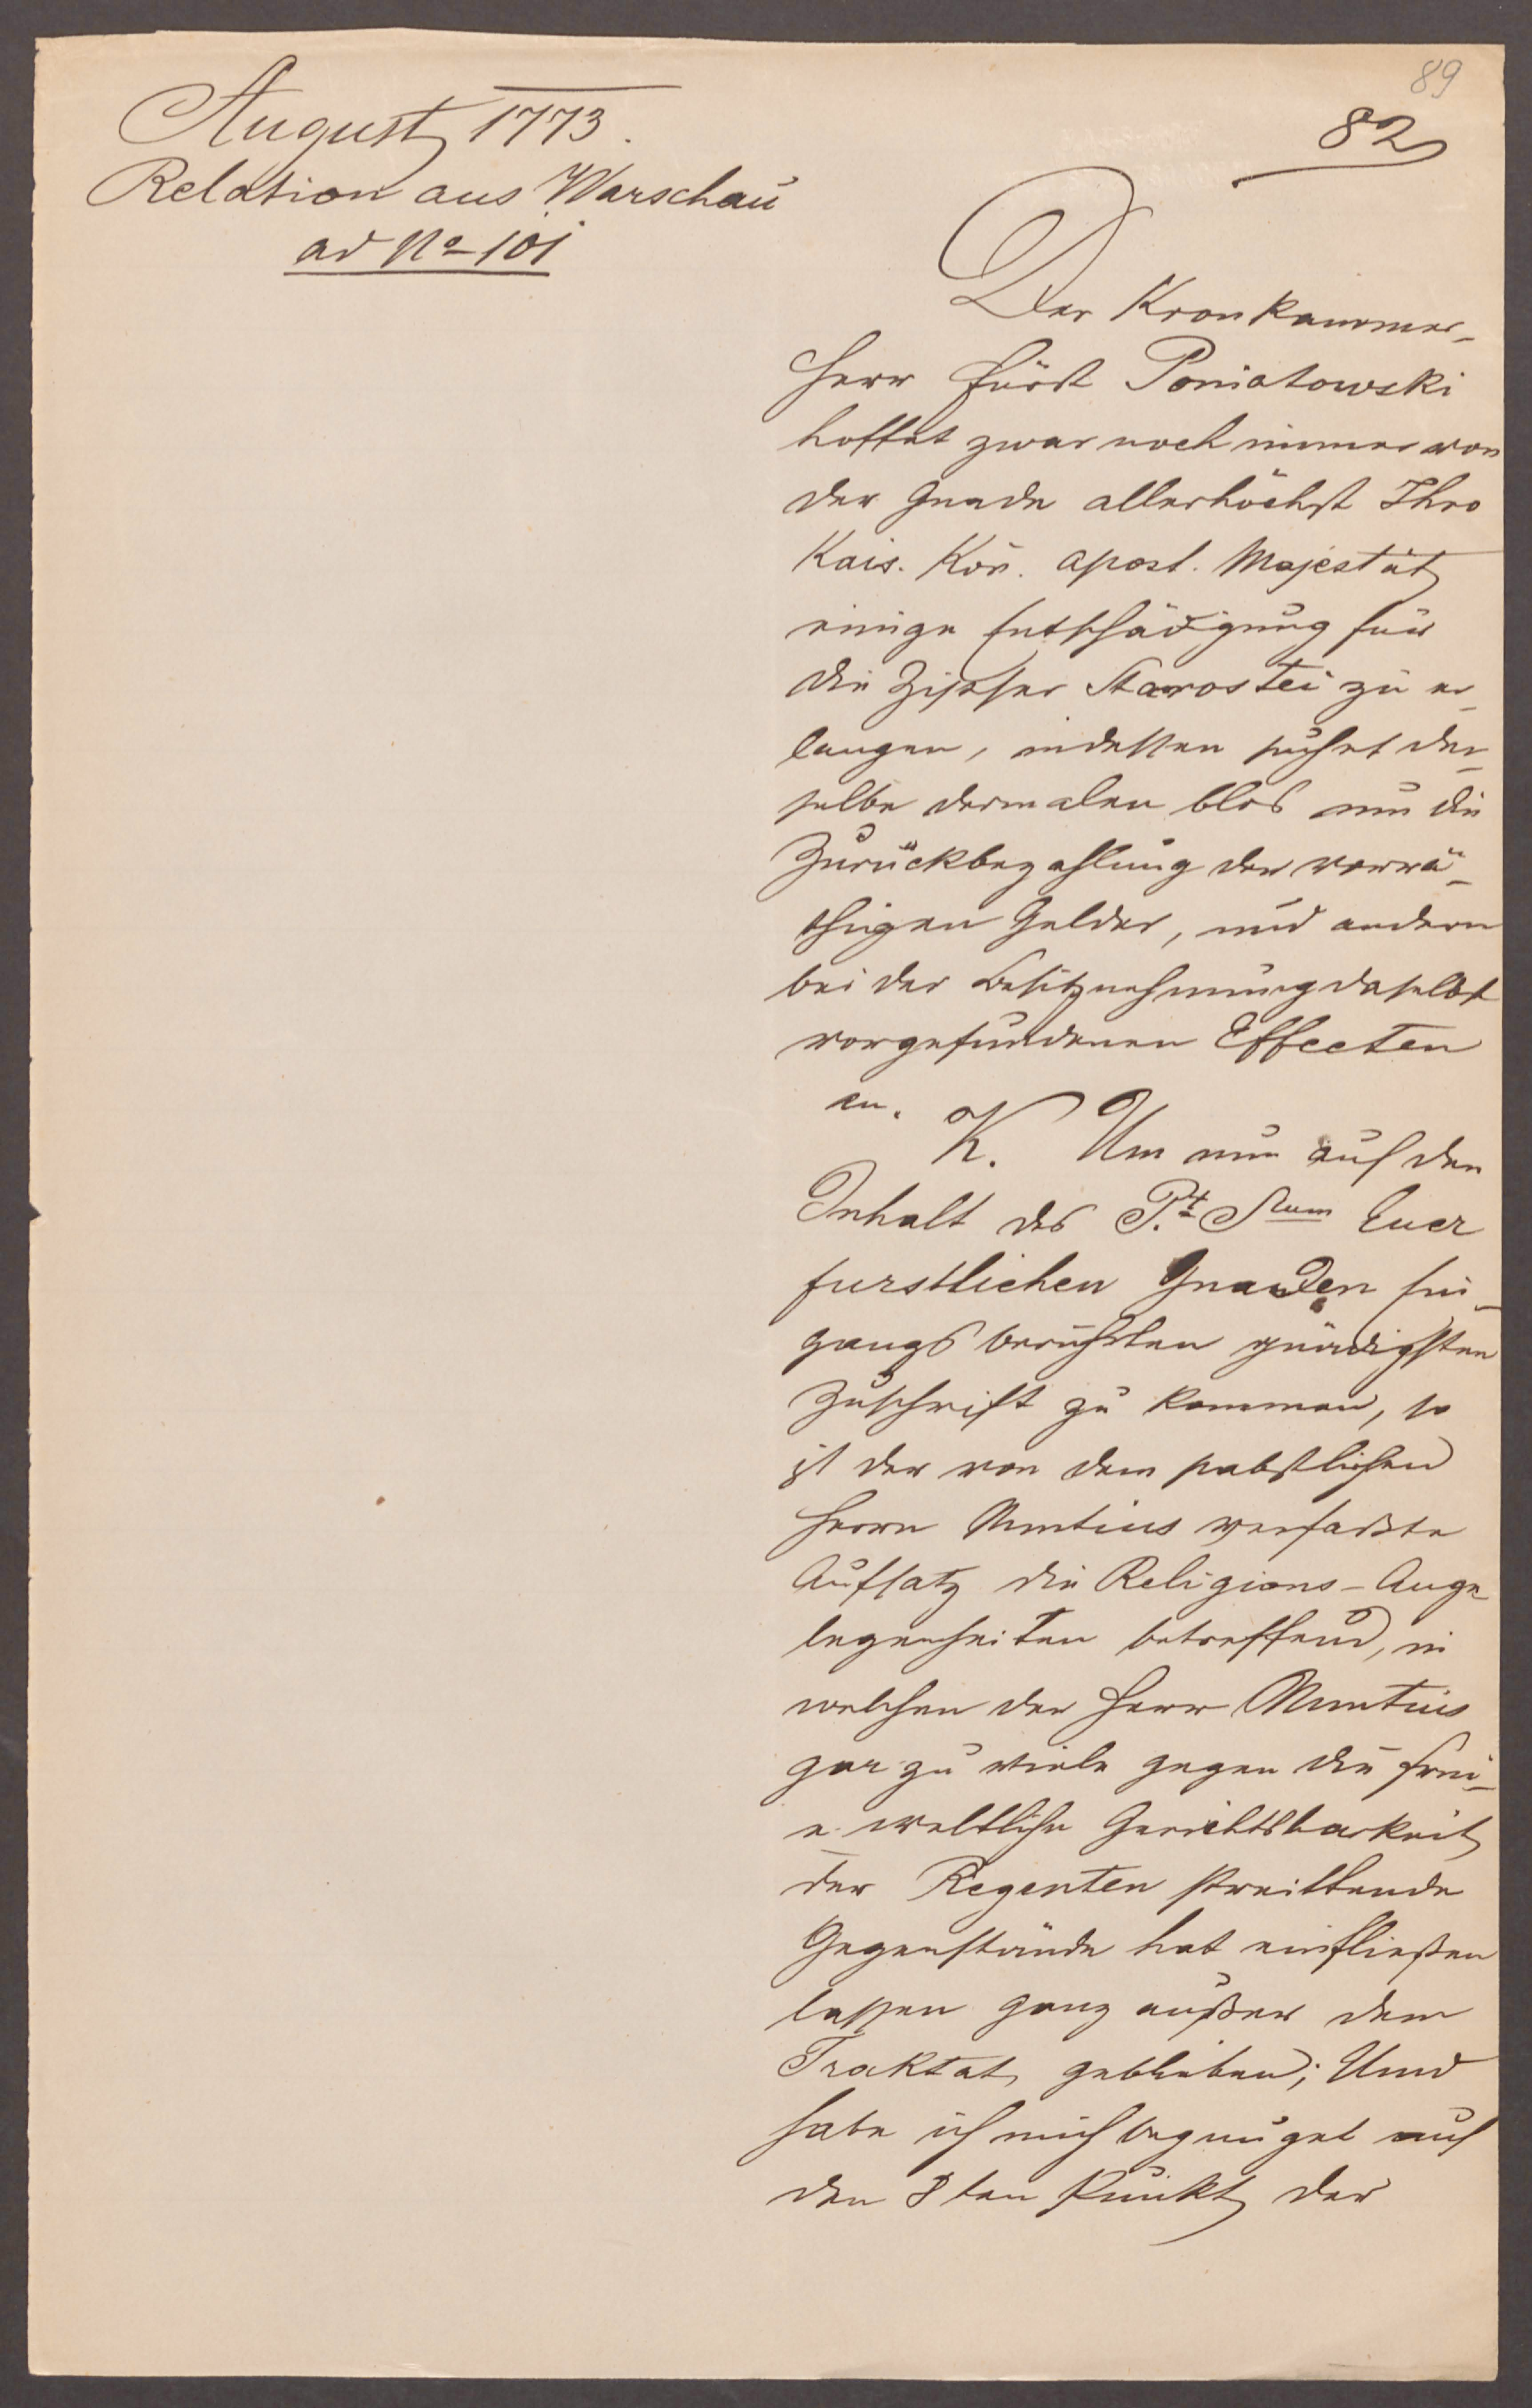 89
82
August 1773.
Relation aus Warschau
ad No 101
Der Kronkammer-
herr Fürst Poniatowski
hoffet zwar noch immer von
der Gnade allerhöchst Ihro
Kais. Kön. apost. Majestät
einige Entschädigung für
die Zipser Starostei zu er-
langen, indessen suchet der-
selbe dermalen blos um die
Zurückbezahlung der vorrä-
thigen Gelder, und andern
bei der Besitznehmung daselbst
vorgefundenen Effecten
an.
K. Um nun auf den
Inhalt des P.t Sum Euer
furstlichen Gnaden Ein-
gangs berührten gnädigsten
Zuschrift zu kommen, so
ist der von dem pabstlichen
Herrn Nuntius verfaßte
Aufsatz die Religions-Ange-
legenheiten betreffend, in
welchen der Herr Nuntius
gar zu viele gegen die frei-
e weltliche Gerichtsbarkeit
der Regenten streittende
Gegenstände hat einfließen
lassen ganz außer dem
Traktat geblieben; Und
habe ich mich begnüget auf
den 8ten Punkt der